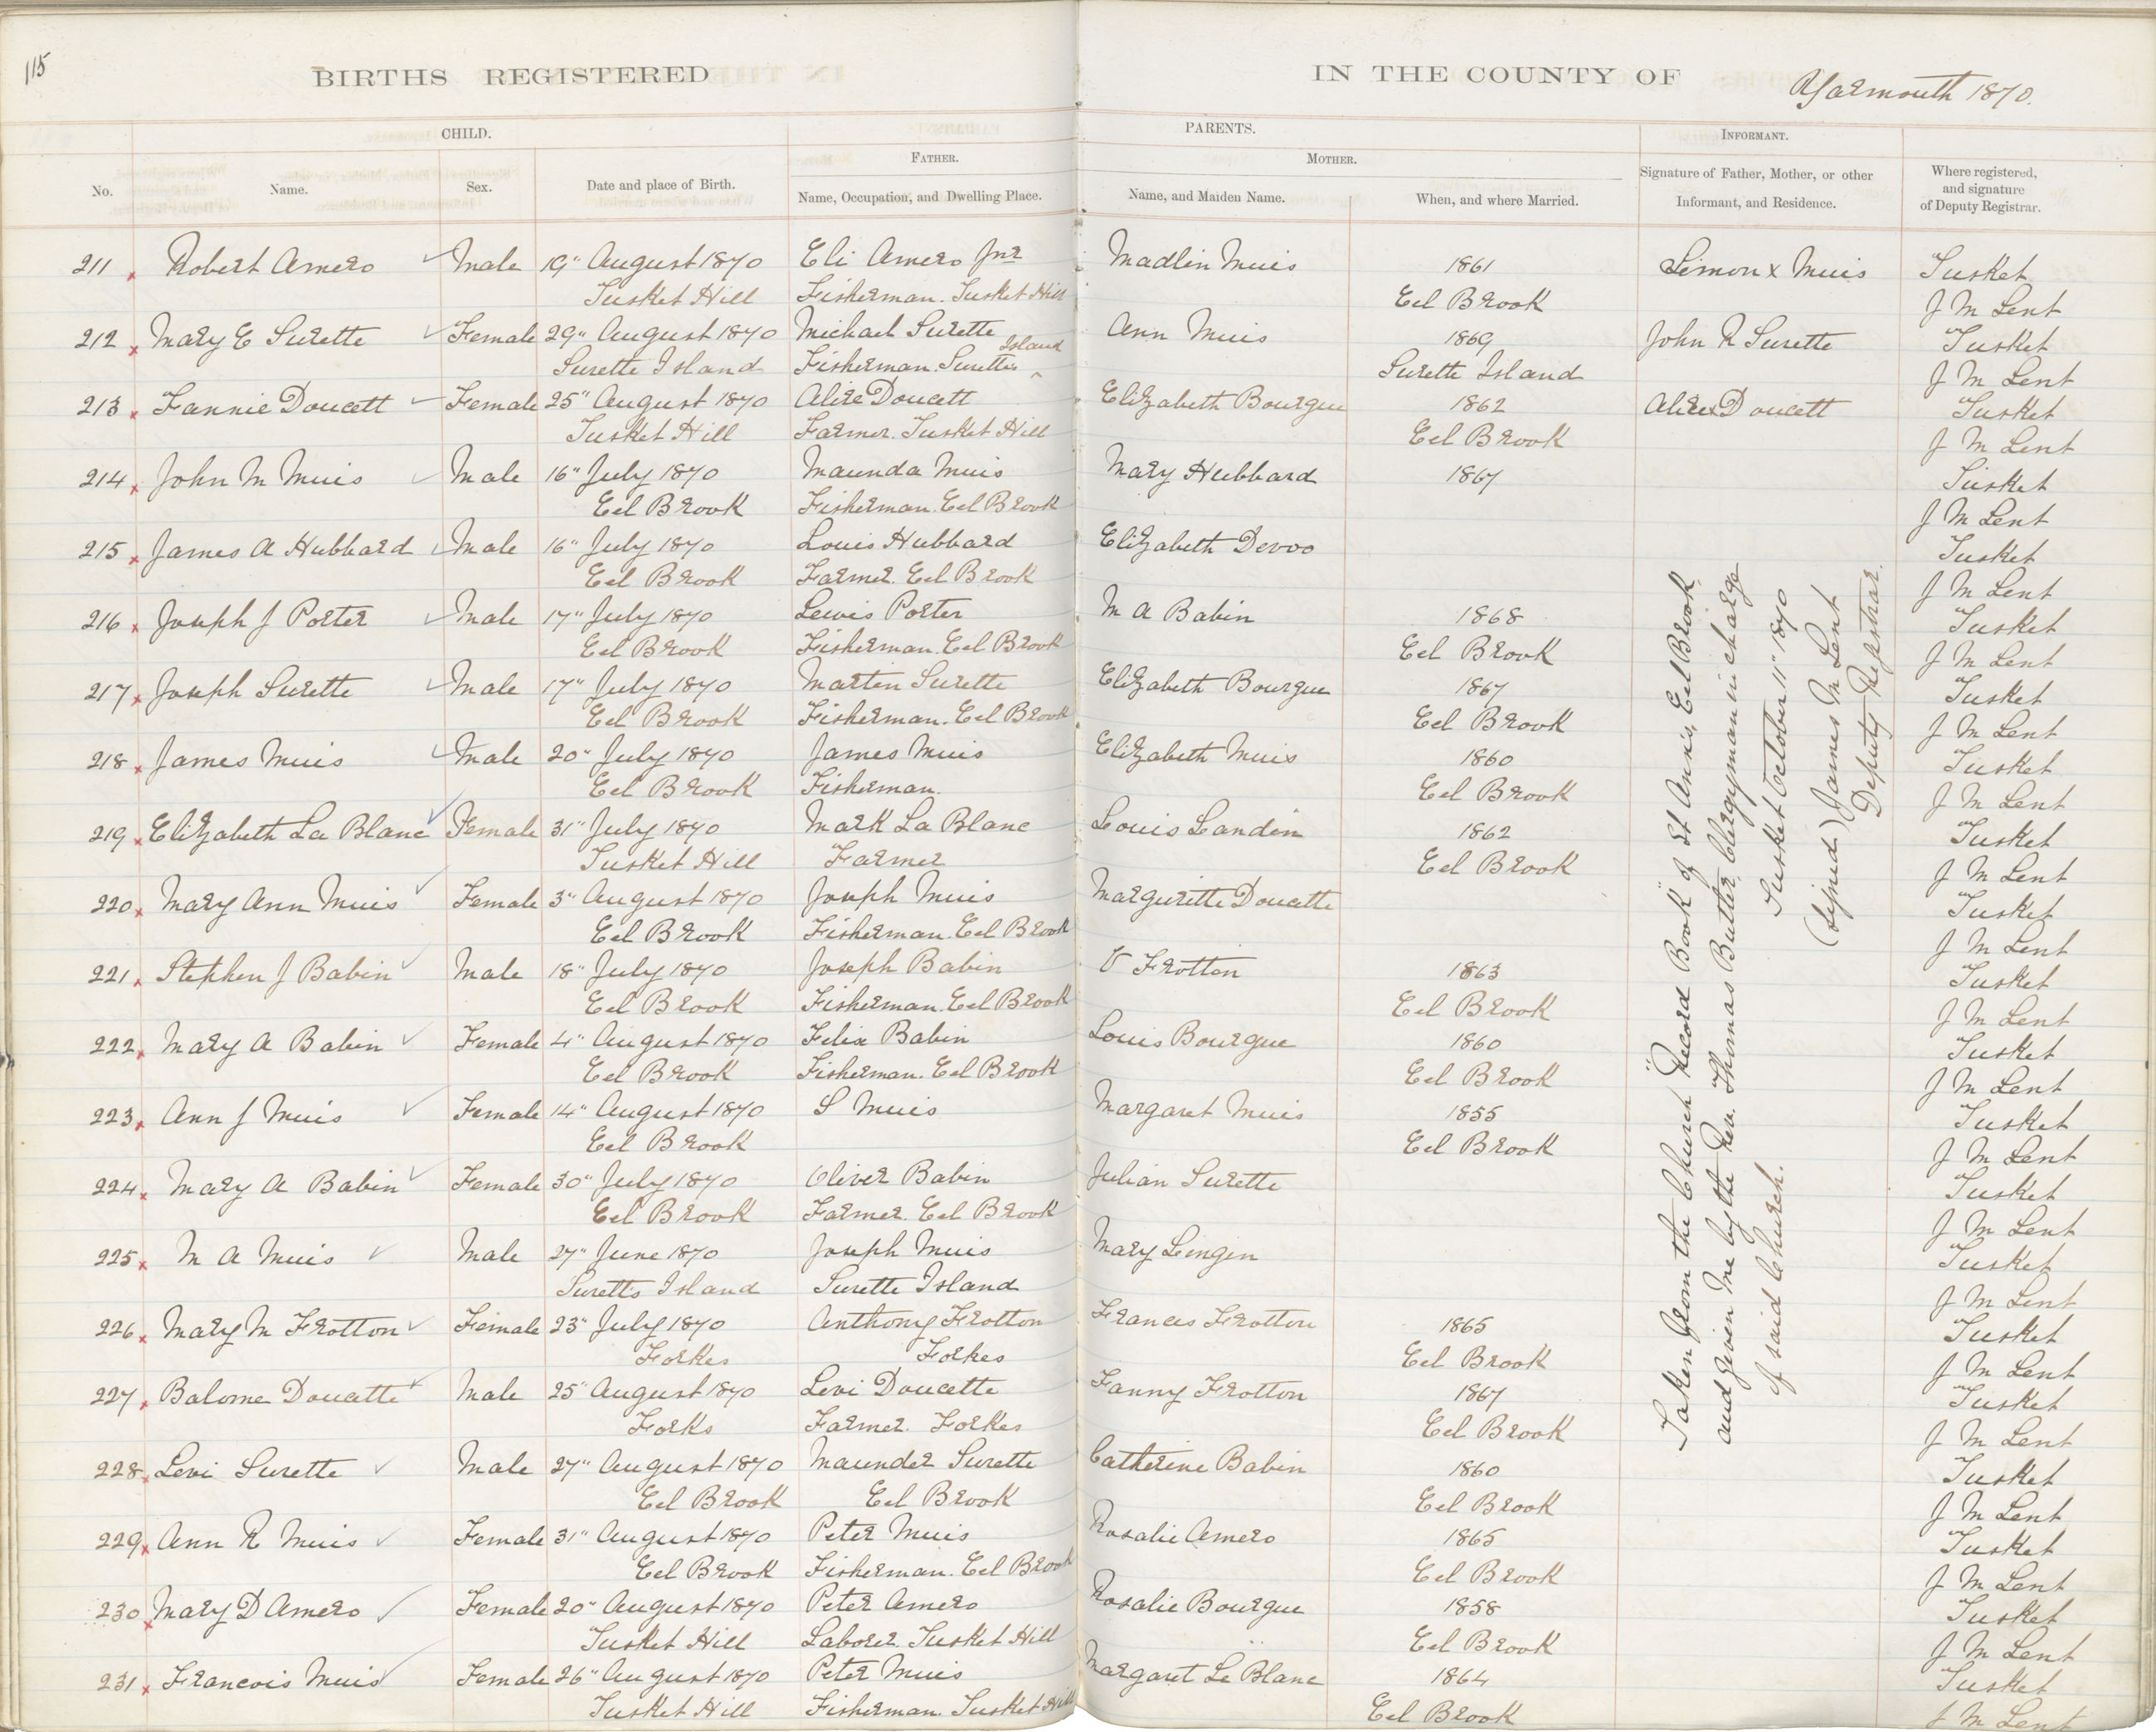 115
BIRTHS REGISTERED IN THE COUNTY OF Yarmouth 1870.
CHILD. PARENTS. INFORMANT.
FATHER. MOTHER.
No. Name. Sex. Date and place of Birth. Name, Occupation, and Dwelling Place. Name, and Maiden Name. When, and where Married. Signature of Father, Mother, or other Informant, and Residence. Where registered, and signature of Deputy Registrar.
211 Robert Amero Male 19" August 1870 Eli Amero Jnr Madlin Muis 1861 Simon x Muis Tusket
Tusket Hill Fisherman. Tusket Hill Eel Brook J M Lent
212 Mary E Surette Female 29" August 1870 Michael Surette Ann Muis 1869 John R Surette Tusket
Surette Island Fisherman. Surettes Island Surette Island J M Lent
213 Fannie Doucett Female 25" August 1870 Alire Doucett Elizabeth Bourgue 1862 Alire x Doucett Tusket
Tusket Hill Farmer. Tusket Hill Eel Brook J M Lent
214 John M Muis Male 16" July 1870 Maunda Muis Mary Hubbard 1867 Tusket
Eel Brook Fisherman. Eel Brook J M Lent
215 James A Hubbard Male 16" July 1870 Louis Hubbard Elizabeth Devoo Tusket
Eel Brook Farmer. Eel Brook J M Lent
216 Joseph J Porter Male 17" July 1870 Lewis Porter M A Babin 1868 Tusket
Eel Brook Fisherman. Eel Brook Eel Brook J M Lent
217 Joseph Surette Male 17" July 1870 Martin Surette Elizabeth Bourgue 1867 Tusket
Eel Brook Fisherman. Eel Brook Eel Brook J M Lent
218 James Muis Male 20" July 1870 James Muis Elizabeth Muis 1860 Tusket
Eel Brook Fisherman. Eel Brook J M Lent
219 Elizabeth La Blanc Female 31" July 1870 Mark La Blanc Louis Landin 1862 Tusket
Tusket Hill Farmer Eel Brook J M Lent
220 Mary Ann Muis Female 3" August 1870 Joseph Muis Margurette Doucette Tusket
Eel Brook Fisherman. Eel Brook J M Lent
221 Stephen J Babin Male 18" July 1870 Joseph Babin V Frotton 1863 Tusket
Eel Brook Fisherman. Eel Brook Eel Brook J M Lent
222 Mary A Babin Female 4" August 1870 Felix Babin Louis Bourgue 1860 Tusket
Eel Brook Fisherman. Eel Brook Eel Brook J M Lent
223 Ann J Muis Female 14" August 1870 S Muis Margaret Muis 1855 Tusket
Eel Brook Eel Brook J M Lent
224 Mary A Babin Female 30" July 1870 Oliver Babin Julian Surette Tusket
Eel Brook Farmer. Eel Brook J M Lent
225 M A Muis Male 27" June 1870 Joseph Muis Mary Lingin Tusket
Suretts Island Surette Island J M Lent
226 Mary M Frotton Female 23" July 1870 Anthony Frotton Frances Frotton 1865 Tusket
Forkes Forkes Eel Brook J M Lent
227 Balome Doucette Male 25" August 1870 Levi Doucette Fanny Frotton 1867 Tusket
Forks Farmer. Forkes Eel Brook J M Lent
228 Levi Surette Male 27" August 1870 Maunder Surette Catherine Babin 1860 Tusket
Eel Brook Eel Brook Eel Brook J M Lent
229 Ann R Muis Female 31" August 1870 Peter Muis Rosalie Amero 1865 Tusket
Eel Brook Fisherman. Eel Brook Eel Brook J M Lent
230 Mary D Amero Female 20" August 1870 Peter Amero Rosalie Bourgue 1858 Tusket
Tusket Hill Laborer. Tusket Hill Eel Brook J M Lent
231 Francois Muis Female 26" August 1870 Peter Muis Margaret Le Blanc 1864 Tusket
Tusket Hill Fisherman. Tusket Hill Eel Brook J M Lent
Taken from the Church "Record Book" of St Ann's, Eel Brook,
and given me by the Rev. Thomas Butler, Clergyman in charge
of said Church. Tusket October 11" 1870
(signed) James M Lent
Deputy Registrar.